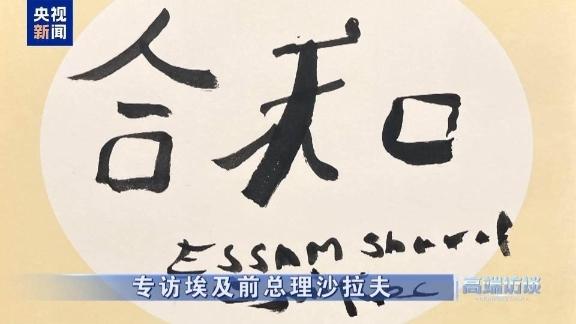 央视
新闻
合和
ESSAM Sharaf
专访埃及前总理沙拉夫
高端访谈